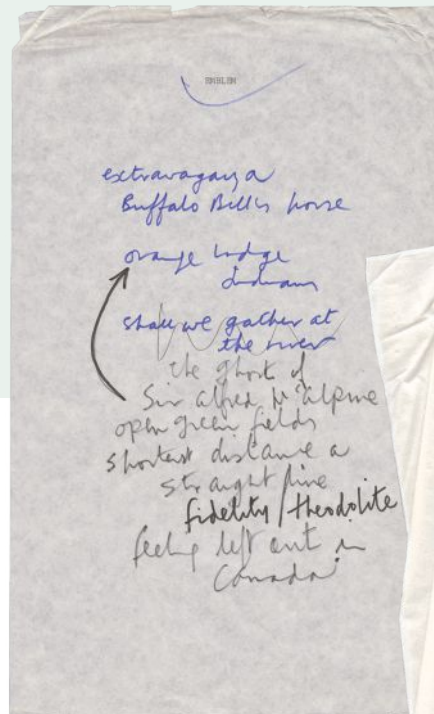 EMBLEM
extravaganza
Buffalo Bill's horse
orange lodge
Indians
shall we gather at
the river
the ghost of
Sir Alfred McAlpine
open green fields
shortest distance a
straight line
fidelity / theodolite
feeling left out in
Canada